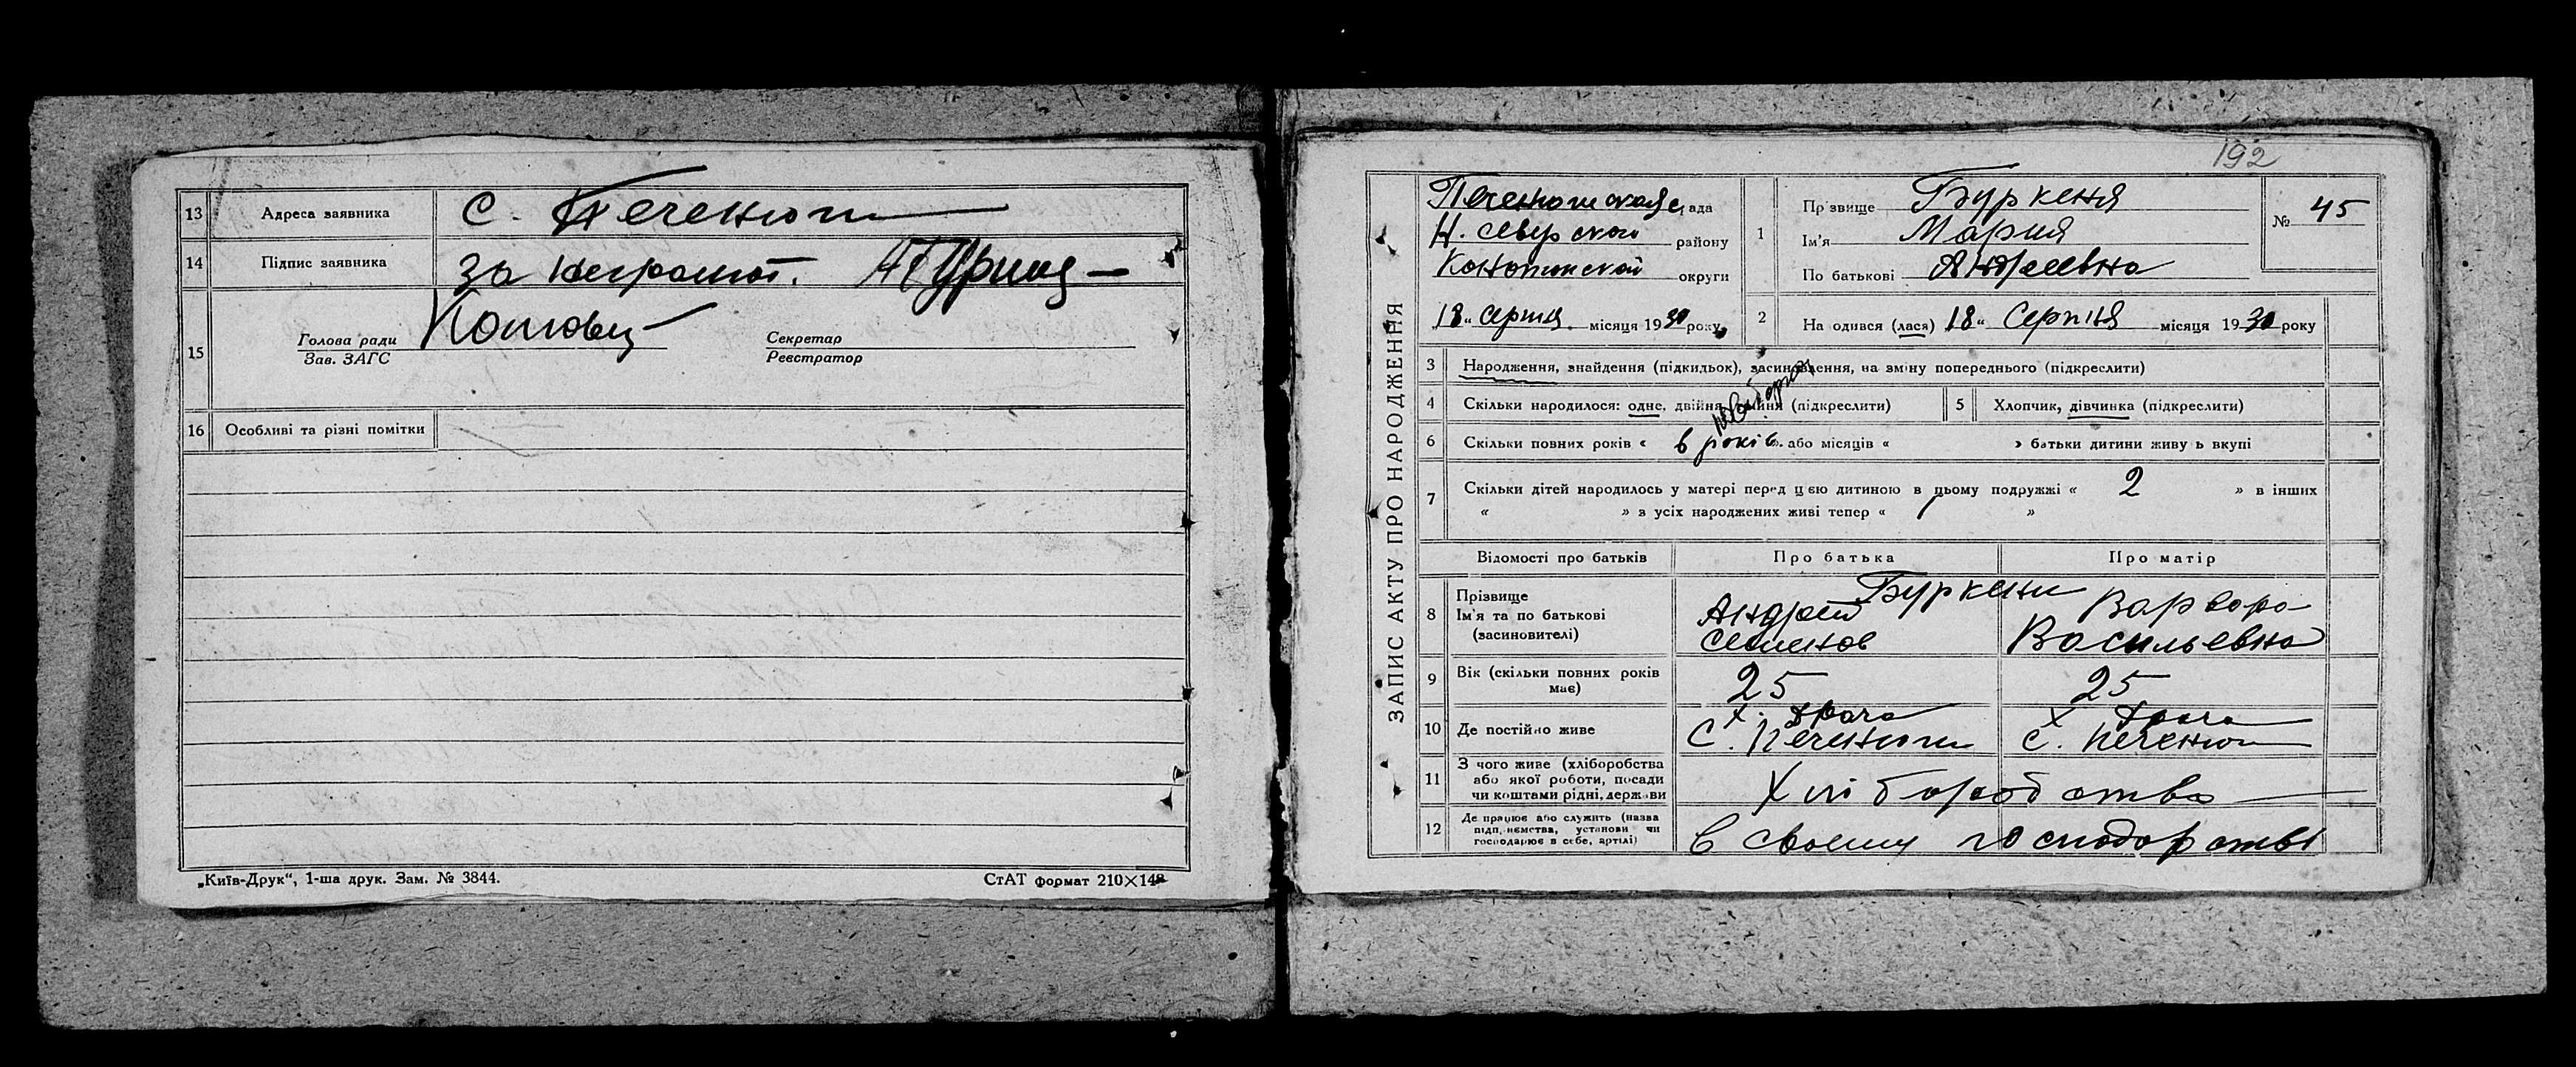 13 Адреса заявника с. Печенюги
14 Підпис заявника за неграмот.
Голова ради
Секретар
15
Зав. ЗАГС
Реєстратор
16 Особливі та різні помітки
„Київ-Друк“, 1-ша друк. Зам. № 3844.
СтАТ формат 210×148
192
ЗАПИС АКТУ ПРО НАРОДЖЕННЯ
Печенюгская рада
Н. северского району
Конотопской округи
18 „ серпня місяця 1930 року
1 Прізвище Буркеня
Ім'я Мария
По батькові Андреевна
№ 45
2 На одився (лася) 18 „ Серпня місяця 1930 року
3 Народження, знайдення (підкидьок), засиновлення, на зміну попереднього (підкреслити)
4 Скільки народилося: одне, двійня, тройня (підкреслити) 5 Хлопчик, дівчинка (підкреслити)
6 Скільки повних років « 6 років » або місяців « » батьки дитини живуть вкупі
7 Скільки дітей народилось у матері перед цією дитиною в цьому подружжі « 2 » в інших
« » з усіх народжених живі тепер « »
Відомості про батьків Про батька Про матір
8 Прізвище
Ім'я та по батькові
(засиновителі)
Буркени
Андрей
Семенов
Варвара
Васильевна
9 Вік (скільки повних років має) 25 25
10 Де постійно живе
с. Печенюги
с. Печенюги
11 З чого живе (хліборобства
або якої роботи, посади
чи коштами рідні, держави
Хліборобства
12 Де працює або служить (назва
підприємства, установи чи
господарює в себе, артілі)
в своему господарстві